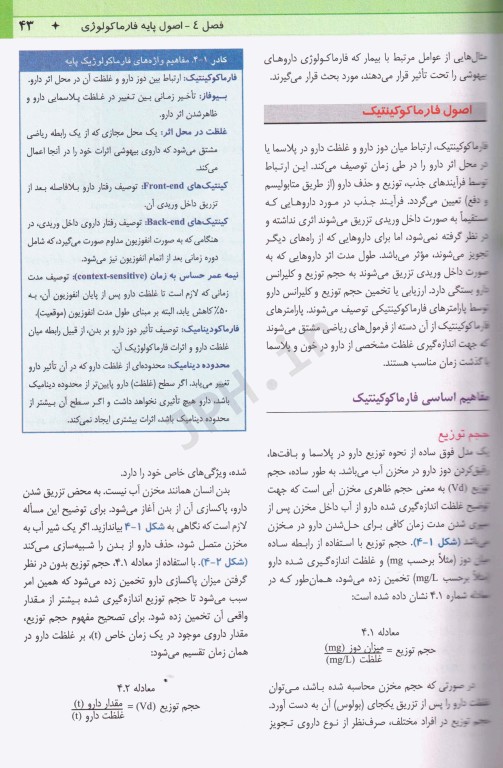 فصل ٤ - اصول پایه فارماکولوژی ✦ ۴۳
مثال‌هایی از عوامل مرتبط با بیمار که فارماکولوژی داروهای
بیهوشی را تحت تأثیر قرار می‌دهند، مورد بحث قرار می‌گیرند.
اصول فارماکوکینتیک
فارماکوکینتیک، ارتباط میان دوز دارو و غلظت دارو در پلاسما یا
در محل اثر دارو را در طی زمان توصیف می‌کند. این ارتباط
توسط فرآیندهای جذب، توزیع و حذف دارو (از طریق متابولیسم
و دفع) تعیین می‌گردد. فرآیند جذب در مورد داروهایی که
مستقیماً به صورت داخل وریدی تزریق می‌شوند اثری نداشته و
در نظر گرفته نمی‌شود، اما برای داروهایی که از راه‌های دیگر
تجویز می‌شوند، مؤثر می‌باشد. طول مدت اثر داروهایی که به
صورت داخل وریدی تزریق می‌شوند به حجم توزیع و کلیرانس
دارو بستگی دارد. ارزیابی یا تخمین حجم توزیع و کلیرانس دارو
توسط پارامترهای فارماکوکینتیکی توصیف می‌شوند. پارامترهای
فارماکوکینتیک از آن دسته از فرمول‌های ریاضی مشتق می‌شوند
که جهت اندازه‌گیری غلظت مشخصی از دارو در خون و پلاسما
با گذشت زمان مناسب هستند.
مفاهیم اساسی فارماکوکینتیک
حجم توزیع
یک مدل فوق ساده از نحوه توزیع دارو در پلاسما و بافت‌ها،
رقیق‌کردن دوز دارو در مخزن آب می‌باشد. به طور ساده، حجم
توزیع (Vd) به معنی حجم ظاهری مخزن آبی است که جهت
توضیح غلظت اندازه‌گیری شده دارو از آب داخل مخزن پس از
سپری شدن مدت زمان کافی برای حل‌شدن دارو در مخزن
می‌باشد (شکل ۱-۴). حجم توزیع با استفاده از رابطه ساده
میان دوز (مثلاً برحسب mg) و غلظت اندازه‌گیری شده دارو
(مثلاً برحسب mg/L) تخمین زده می‌شود، همان‌طور که در
معادله شماره ۴.۱ نشان داده شده است:
معادله ۴.۱
حجم توزیع = میزان دوز (mg)
غلظت (mg/L)
در صورتی که حجم مخزن محاسبه شده باشد، می‌توان
غلظت دارو را پس از تزریق یکجای (بولوس) آن به دست آورد.
حجم توزیع در افراد مختلف، صرف‌نظر از نوع داروی تجویز
کادر ۱-۴. مفاهیم واژه‌های فارماکولوژیک پایه
فارماکوکینتیک: ارتباط بین دوز دارو و غلظت آن در محل اثر دارو.
بیوفاز: تأخیر زمانی بین تغییر در غلظت پلاسمایی دارو و
ظاهرشدن اثر دارو.
غلظت در محل اثر: یک محل مجازی که از یک رابطه ریاضی
مشتق می‌شود که داروی بیهوشی اثرات خود را در آنجا اعمال
می‌کند.
کینتیک‌های Front-end: توصیف رفتار دارو بلافاصله بعد از
تزریق داخل وریدی آن.
کینتیک‌های Back-end: توصیف رفتار داروی داخل وریدی، در
هنگامی که به صورت انفوزیون مداوم صورت می‌گیرد، که شامل
دوره زمانی بعد از اتمام انفوزیون نیز می‌شود.
نیمه عمر حساس به زمان (context-sensitive): توصیف مدت
زمانی که لازم است تا غلظت دارو پس از پایان انفوزیون آن، به
۵۰٪ کاهش یابد، البته بر مبنای طول مدت انفوزیون (موقعیت).
فارماکودینامیک: توصیف تأثیر دوز دارو بر بدن، از قبیل رابطه میان
غلظت دارو و اثرات فارماکولوژیک آن.
محدوده دینامیک: محدوده‌ای از غلظت دارو که در آن تأثیر دارو
تغییر می‌یابد. اگر سطح (غلظت) دارو پایین‌تر از محدوده دینامیک
باشد، دارو هیچ تأثیری نخواهد داشت و اگر سطح آن بیشتر از
محدوده دینامیک باشد، اثرات بیشتری ایجاد نمی‌کند.
شده، ویژگی‌های خاص خود را دارد.
بدن انسان همانند مخزن آب نیست. به محض تزریق شدن
دارو، پاکسازی آن از بدن آغاز می‌شود. برای توضیح این مسأله
لازم است که نگاهی به شکل ۱-۴ بیاندازید. اگر یک شیر آب به
مخزن متصل شود، حذف دارو از بدن را شبیه‌سازی می‌کند
(شکل ۲-۴). با استفاده از معادله ۴.۱، حجم توزیع بدون در نظر
گرفتن میزان پاکسازی دارو تخمین زده می‌شود که همین امر
سبب می‌شود تا حجم توزیع اندازه‌گیری شده بیشتر از مقدار
واقعی آن تخمین زده شود. برای تصحیح مفهوم حجم توزیع،
مقدار داروی موجود در یک زمان خاص (t)، بر غلظت دارو در
همان زمان تقسیم می‌شود:
معادله ۴.۲
حجم توزیع (Vd) = مقدار دارو (t)
غلظت دارو (t)